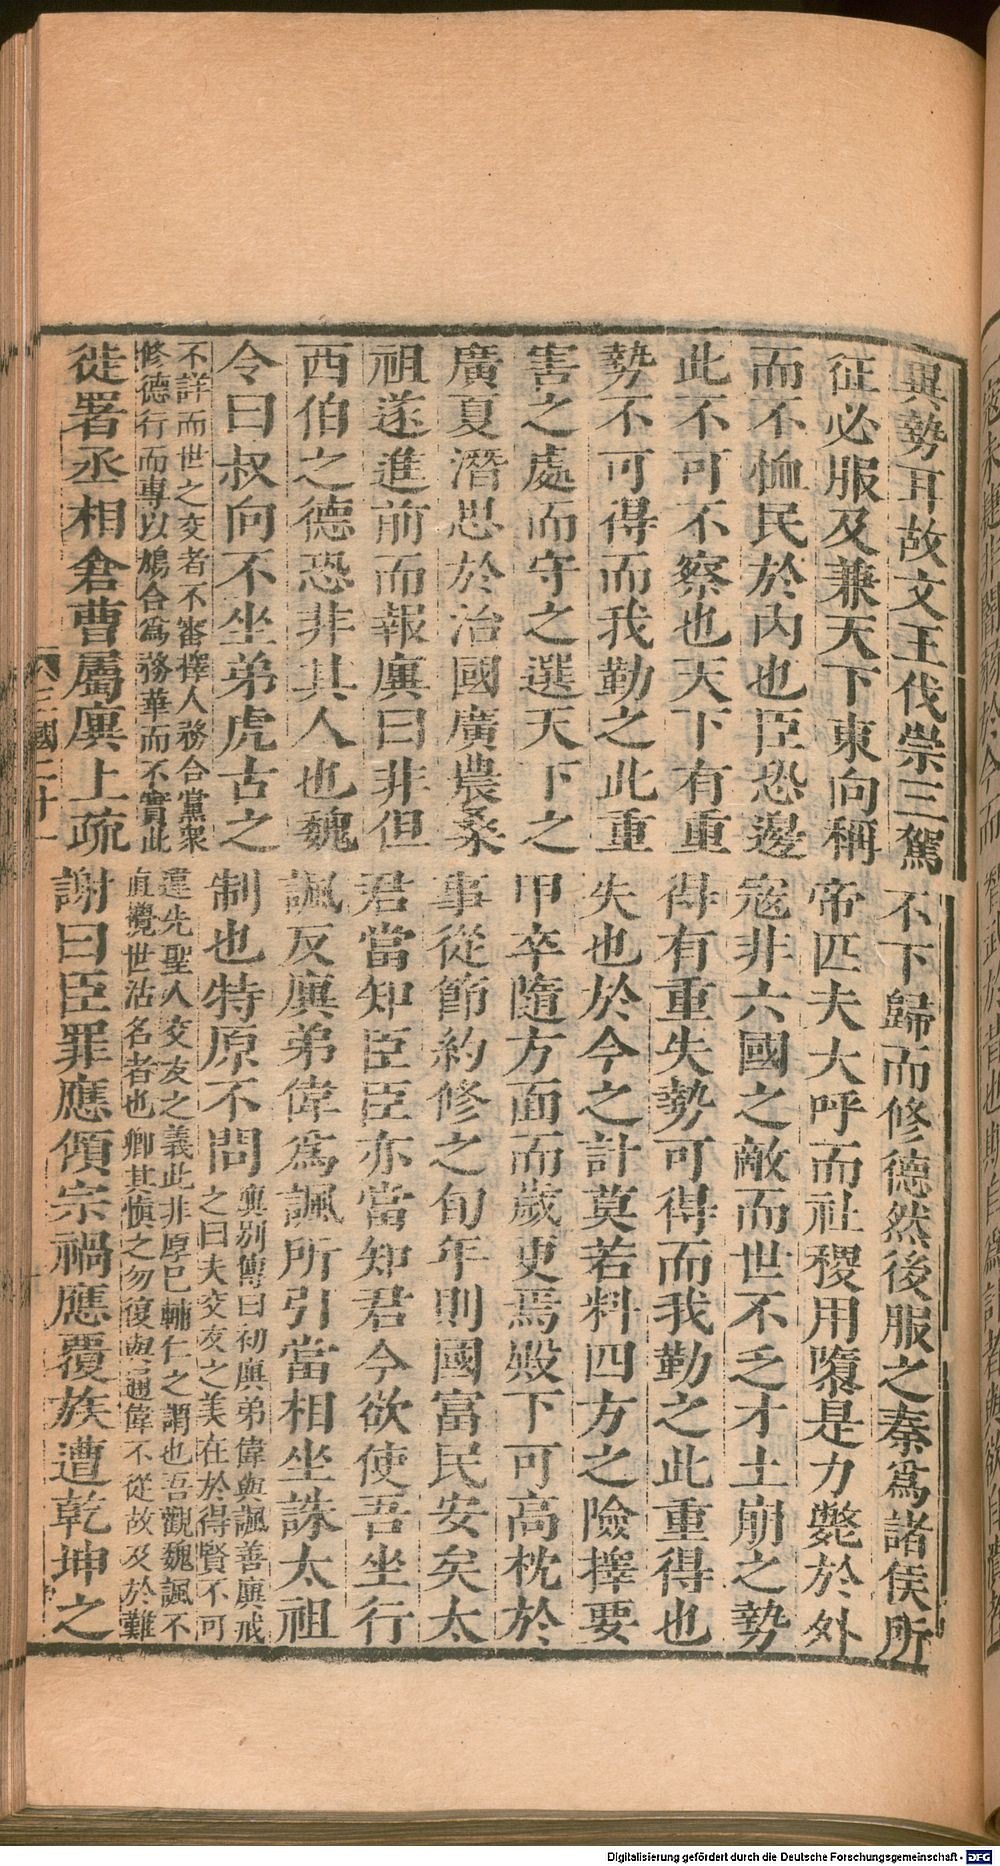 異勢耳故文王伐崇三駕不下歸而修德然後服之秦爲諸侯所
征必服及兼天下東向稱帝匹夫大呼而社稷用隳是力斃於外
而不恤民於內也臣恐邊寇非六國之敵而世不乏才土崩之勢
此不可不察也天下有重得有重失勢可得而我勤之此重得也
勢不可得而我勤之此重失也於今之計莫若料四方之險擇要
害之處而守之選天下之甲卒隨方面而歲更焉殿下可高枕於
廣夏潛思於治國廣農桑事從節約修之旬年則國富民安矣太
祖遂進前而報廙曰非但君當知臣臣亦當知君今欲使吾坐行
西伯之德恐非其人也魏諷反廙弟偉爲諷所引當相坐誅太祖
令曰叔向不坐弟虎古之制也特原不問
廙別傳曰初廙弟偉與諷善廙戒
之曰夫交友之美在於得賢不可
不詳而世之交者不審擇人務合黨衆違先聖人交友之義此非厚己輔仁之謂也吾觀魏諷不
修德行而專以鳩合爲務華而不實此直攪世沽名者也卿其愼之勿復與通偉不從故及於難
徙署丞相倉曹屬廙上疏謝曰臣罪應傾宗禍應覆族遭乾坤之
三國二十一
Digitalisierung gefördert durch die Deutsche Forschungsgemeinschaft - DFG